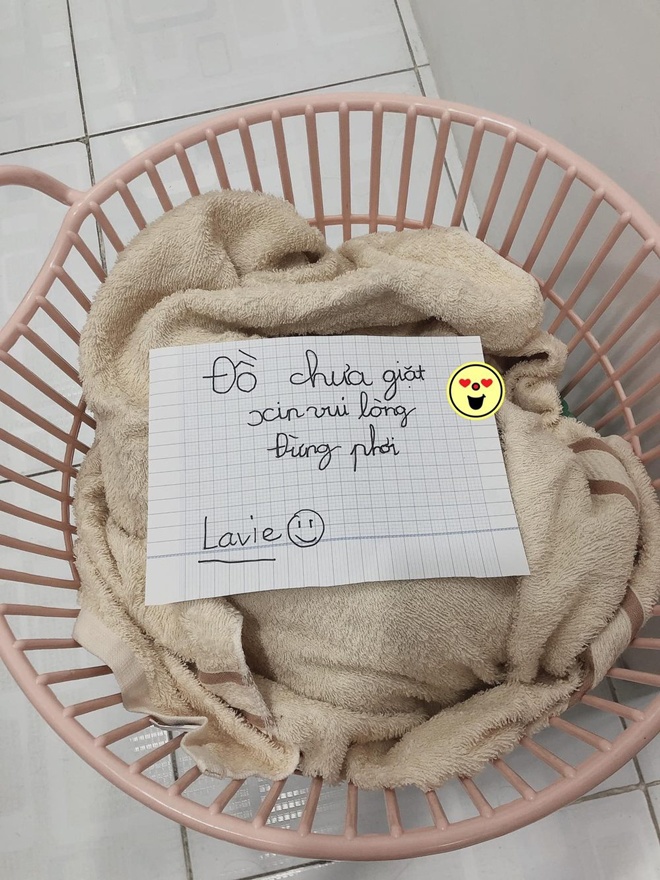 Đồ chưa giặt
xin vui lòng
Đừng phơi
Lavie